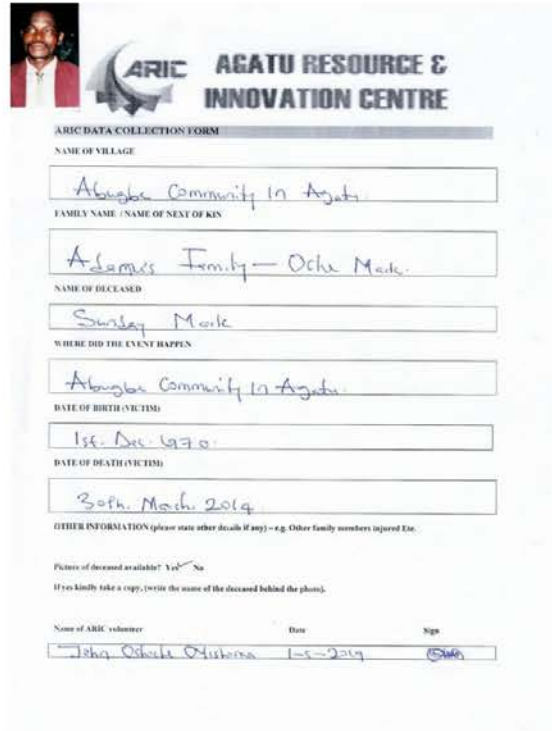 ARIC
AGATU RESOURCE &
INNOVATION CENTRE
ARIC DATA COLLECTION FORM
NAME OF VILLAGE
Abugbe Community In Agatu
FAMILY NAME / NAME OF NEXT OF KIN
Adamu's Family - Oche Mark.
NAME OF DECEASED
Sunday Mark
WHERE DID THE EVENT HAPPEN
Abugbe Community In Agatu.
DATE OF BIRTH (VICTIM)
1st. Dec. 1970.
DATE OF DEATH (VICTIM)
30th. March. 2019
OTHER INFORMATION (please state other details if any) – e.g. Other family members injured Etc.
Picture of deceased available? Yes No
If yes kindly take a copy, (write the name of the deceased behind the photo).
Name of ARIC volunteer Date Sign
John 1-5-2019